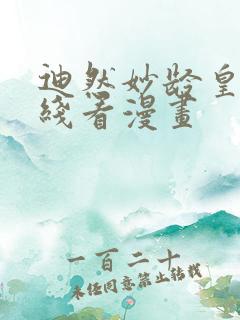 迪然妙龄皇
线看漫画
一百二十
未经同意禁止转载